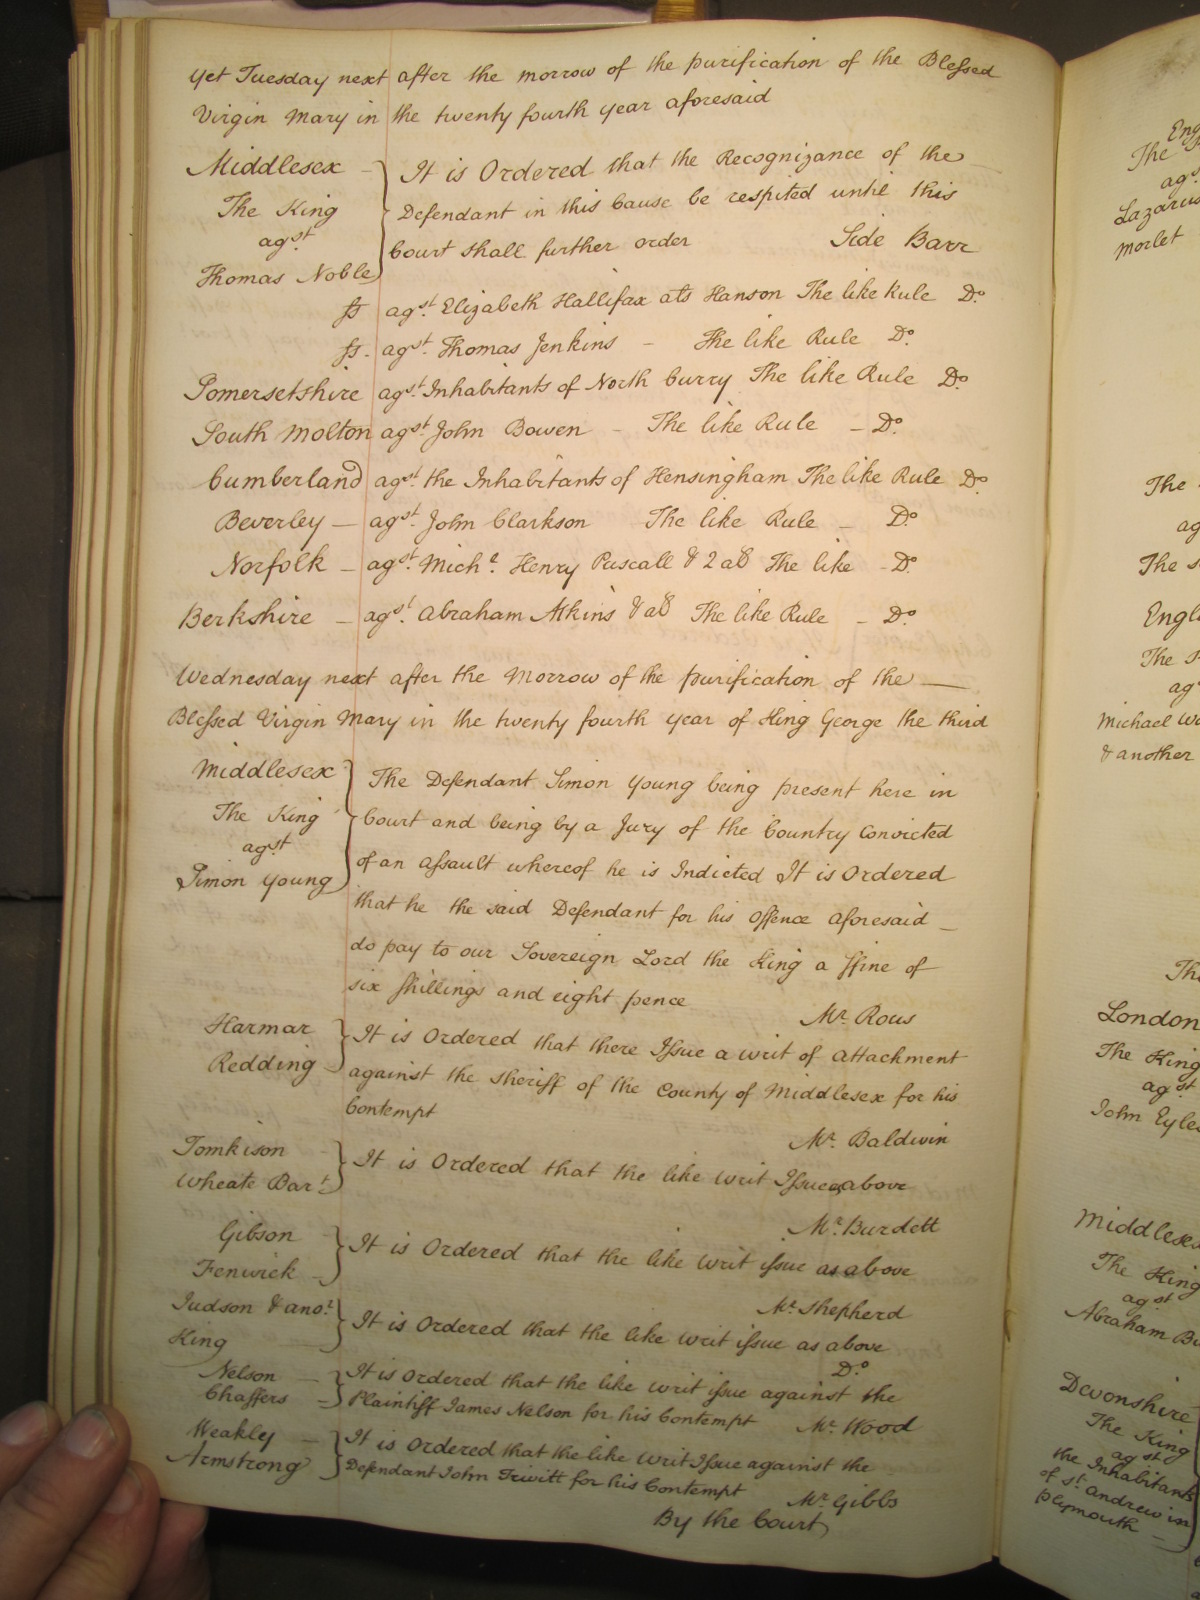 Yet Tuesday next after the morrow of the purification of the Blessed
Virgin Mary in the twenty fourth year aforesaid
Middlesex It is Ordered that the Recognizance of the
The King Defendant in this Cause be respited until this
agst Court shall further order Side Barr
Thomas Noble
ss agst. Elizabeth Hallifax ats Hanson The like Rule Do
ss. agst. Thomas Jenkins - The like Rule Do
Somersetshire agst. Inhabitants of North Curry The like Rule Do
South Molton agst. John Bowen - The like Rule - Do
Cumberland agst. the Inhabitants of Hensingham The like Rule Do
Beverley - agst. John Clarkson The like Rule - Do
Norfolk - agst. Michl. Henry Pascall & 2 als The like - Do
Berkshire - agst. Abraham Atkins & als The like Rule - Do
Wednesday next after the Morrow of the purification of the
Blessed Virgin Mary in the twenty fourth year of King George the third
Middlesex The Defendant Simon Young being present here in
The King Court and being by a Jury of the Country Convicted
agst
Simon Young of an Assault whereof he is Indicted It is Ordered
that he the said Defendant for his Offence aforesaid
do pay to our Sovereign Lord the King a ffine of
six shillings and eight pence Mr. Rous
Harmar It is Ordered that there Issue a writ of Attachment
Redding against the Sheriff of the County of Middlesex for his
Contempt Mr. Baldwin
Tomkison It is Ordered that the like writ Issue as above
Wheate Bart.
Mr. Burdett
Gibson It is Ordered that the like writ issue as above
Fenwick
Mr. Shepherd
Judson & anor. It is Ordered that the like writ issue as above
King
Do
Nelson It is Ordered that the like writ issue against the
Chaffers Plaintiff James Nelson for his Contempt Mr. Wood
Weakley It is Ordered that the like writ Issue against the
Armstrong Defendant John Trivitt for his Contempt Mr. Gibbs
By the Court
The
agst
Lazarus
Morlet
The
ag
The
Engl
The
ag
Michael
& another
The
London
The King
agst
John Eyles
Middlesex
The King
agst
Abraham
Devonshire
The King
agst
the Inhabitants
of St. Andrew in
plymouth